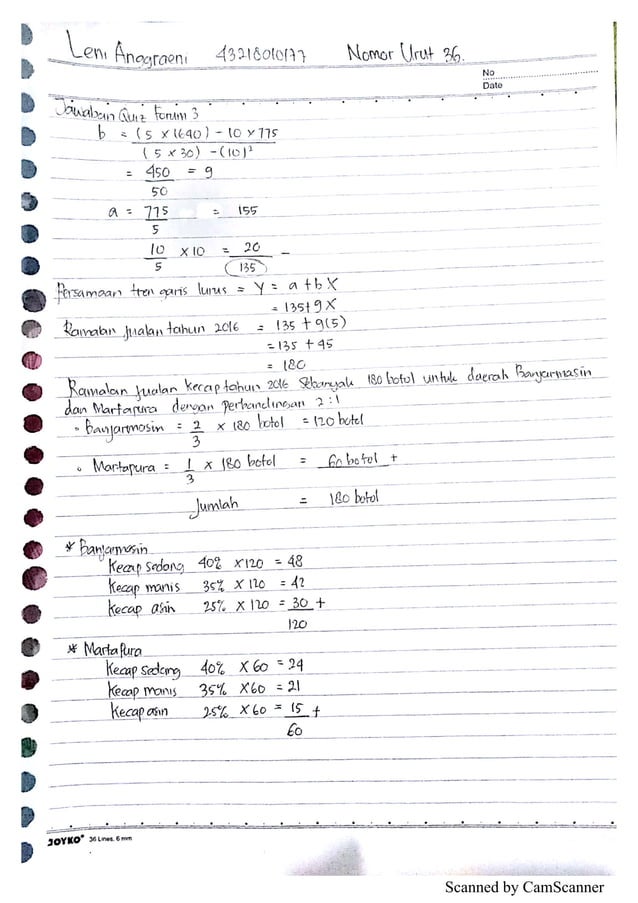 Leni Anggraeni 43218010177 Nomor Urut 36.
No
Date
Jawaban Quiz Forum 3
b = (5 x 1640) - 10 x 775
(5 x 30) - (10)²
= 450 = 9
50
a = 775 = 155
5
10 x 10 = 20 -
5 135
Persamaan tren garis lurus = Y = a + b X
= 135 + 9 X
Ramalan jualan tahun 2016 = 135 + 9(5)
= 135 + 45
= 180
Ramalan jualan kecap tahun 2016 sebanyak 180 botol untuk daerah Banjarmasin
dan Martapura dengan perbandingan 2:1
• Banjarmasin = 2 x 180 botol = 120 botol
3
• Martapura = 1 x 180 botol = 60 botol +
3
Jumlah = 180 botol
* Banjarmasin
Kecap sedang 40% x 120 = 48
Kecap manis 35% x 120 = 42
Kecap asin 25% x 120 = 30 +
120
* Martapura
Kecap sedang 40% x 60 = 24
Kecap manis 35% x 60 = 21
Kecap asin 25% x 60 = 15 +
60
JOYKO 36 Lines, 6 mm
Scanned by CamScanner